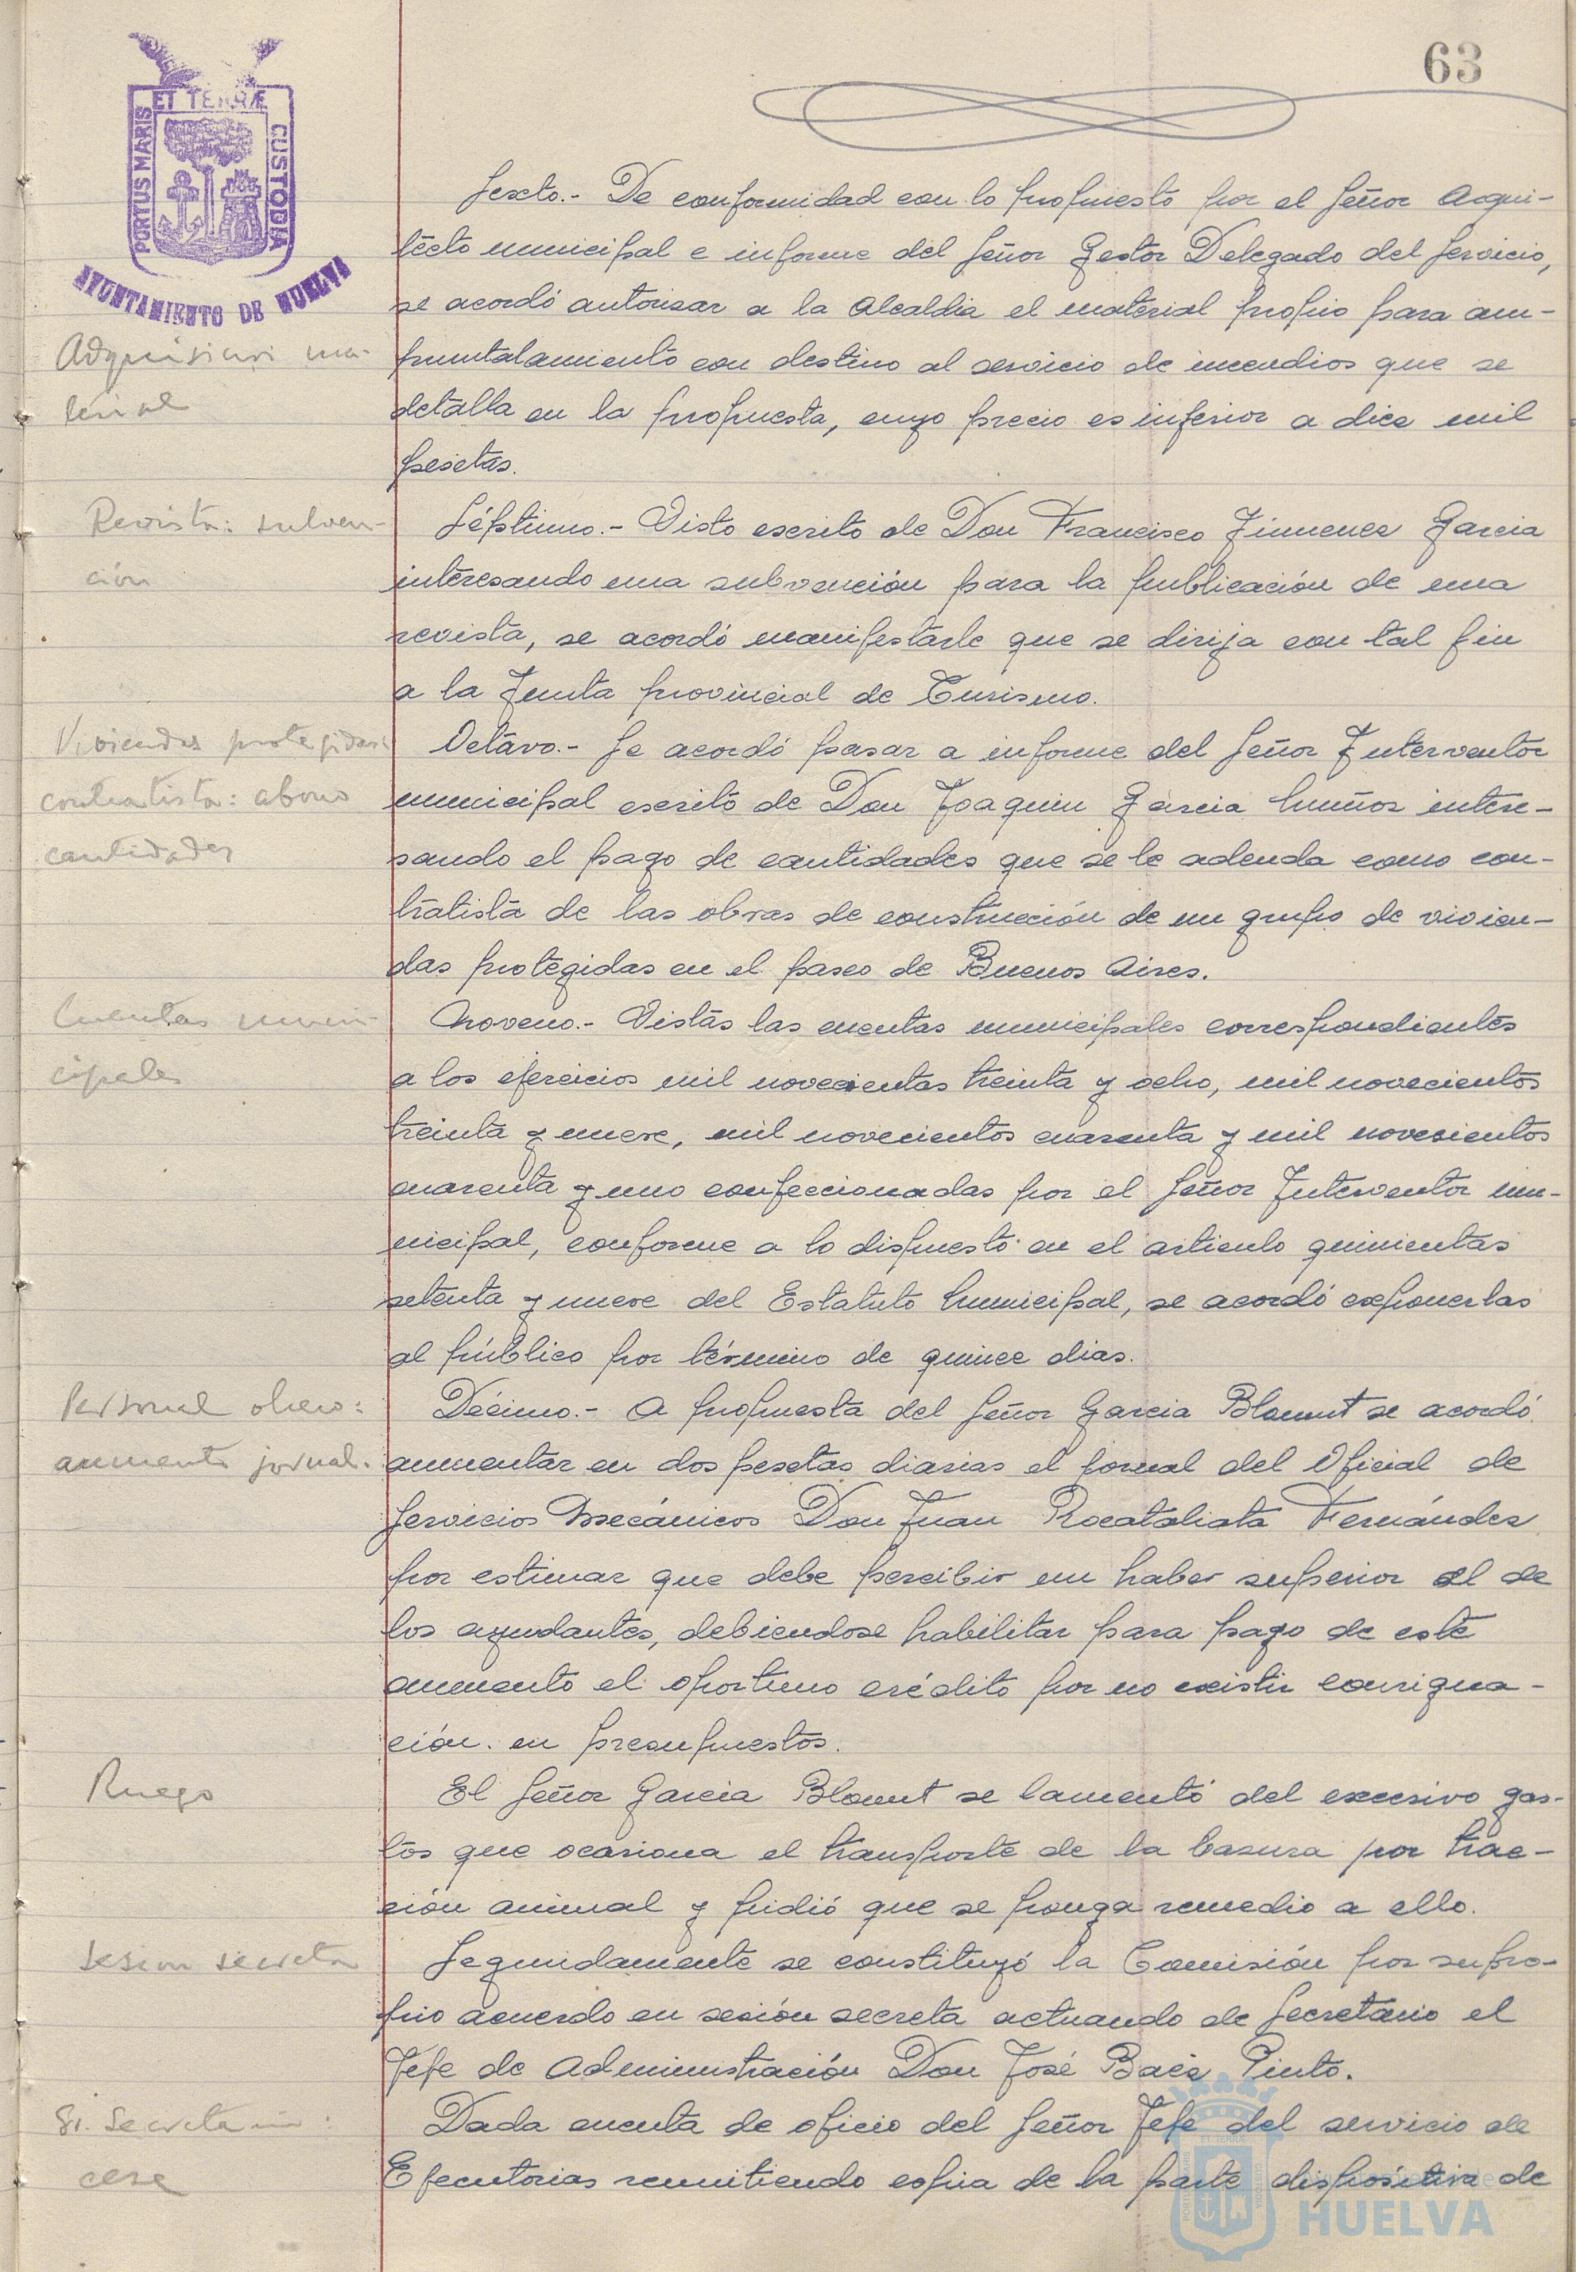 63
ET TERRÆ
PORTUS MARIS
CUSTODIA
AYUNTAMIENTO DE HUELVA
Sexto.- De conformidad con lo propuesto por el Señor Arqui-
tecto municipal e informe del Señor Gestor Delegado del Servicio,
se acordó autorisar a la Alcaldia el material propio para am-
Adquisicion ma-
puntalamiento con destino al servicio de incendios que se
terial
detalla en la propuesta, cuyo precio es inferior a diez mil
pesetas.
Revista: subven-
Séptimo.- Visto escrito de Don Francisco Jimenez Garcia
ción
interesando una subvención para la publicación de una
revista, se acordó manifestarle que se dirija con tal fin
a la Junta provincial de Turismo.
Viviendas protegidas:
Octavo.- Se acordó pasar a informe del Señor Interventor
contratista: abono
municipal escrito de Don Joaquin Garcia Muñoz intere-
cantidades
sando el pago de cantidades que se le adeuda como con-
tratista de las obras de construcción de un grupo de vivien-
das protegidas en el paseo de Buenos Aires.
Cuentas muni-
Noveno.- Vistas las cuentas municipales correspondientes
cipales
a los ejercicios mil novecientas treinta y ocho, mil novecientos
treinta y nueve, mil novecientos cuarenta y mil novecientos
cuarenta y uno confeccionadas por el Señor Interventor mu-
nicipal, conforme a lo dispuesto en el articulo quinientas
setenta y nueve del Estatuto Municipal, se acordó exponerlas
al público por término de quince dias.
Personal obrero:
Décimo.- A propuesta del Señor Garcia Blaunt se acordó
aumento jornal.
aumentar en dos pesetas diarias el jornal del Oficial de
Servicios Mecánicos Don Juan Rocataliata Fernández
por estimar que debe percibir un haber superior al de
los ayudantes, debiendose habilitar para pago de este
aumento el oportuno crédito por no existir consigna-
ción. en presupuestos.
Ruego
El Señor Garcia Blaunt se lamentó del excesivo gas-
tos que ocasiona el transporte de la basura por trac-
ción animal y pidió que se ponga remedio a ello.
Sesion secreta
Seguidamente se constituyó la Comisión por su pro-
pio acuerdo en sesión secreta actuando de Secretario el
Jefe de Administración Don José Baez Pinto.
Sr. Secretario:
Dada cuenta de oficio del Señor Jefe del servicio de
cese
Ejecutorias remitiendo copia de la parte dispositiva de
HUELVA